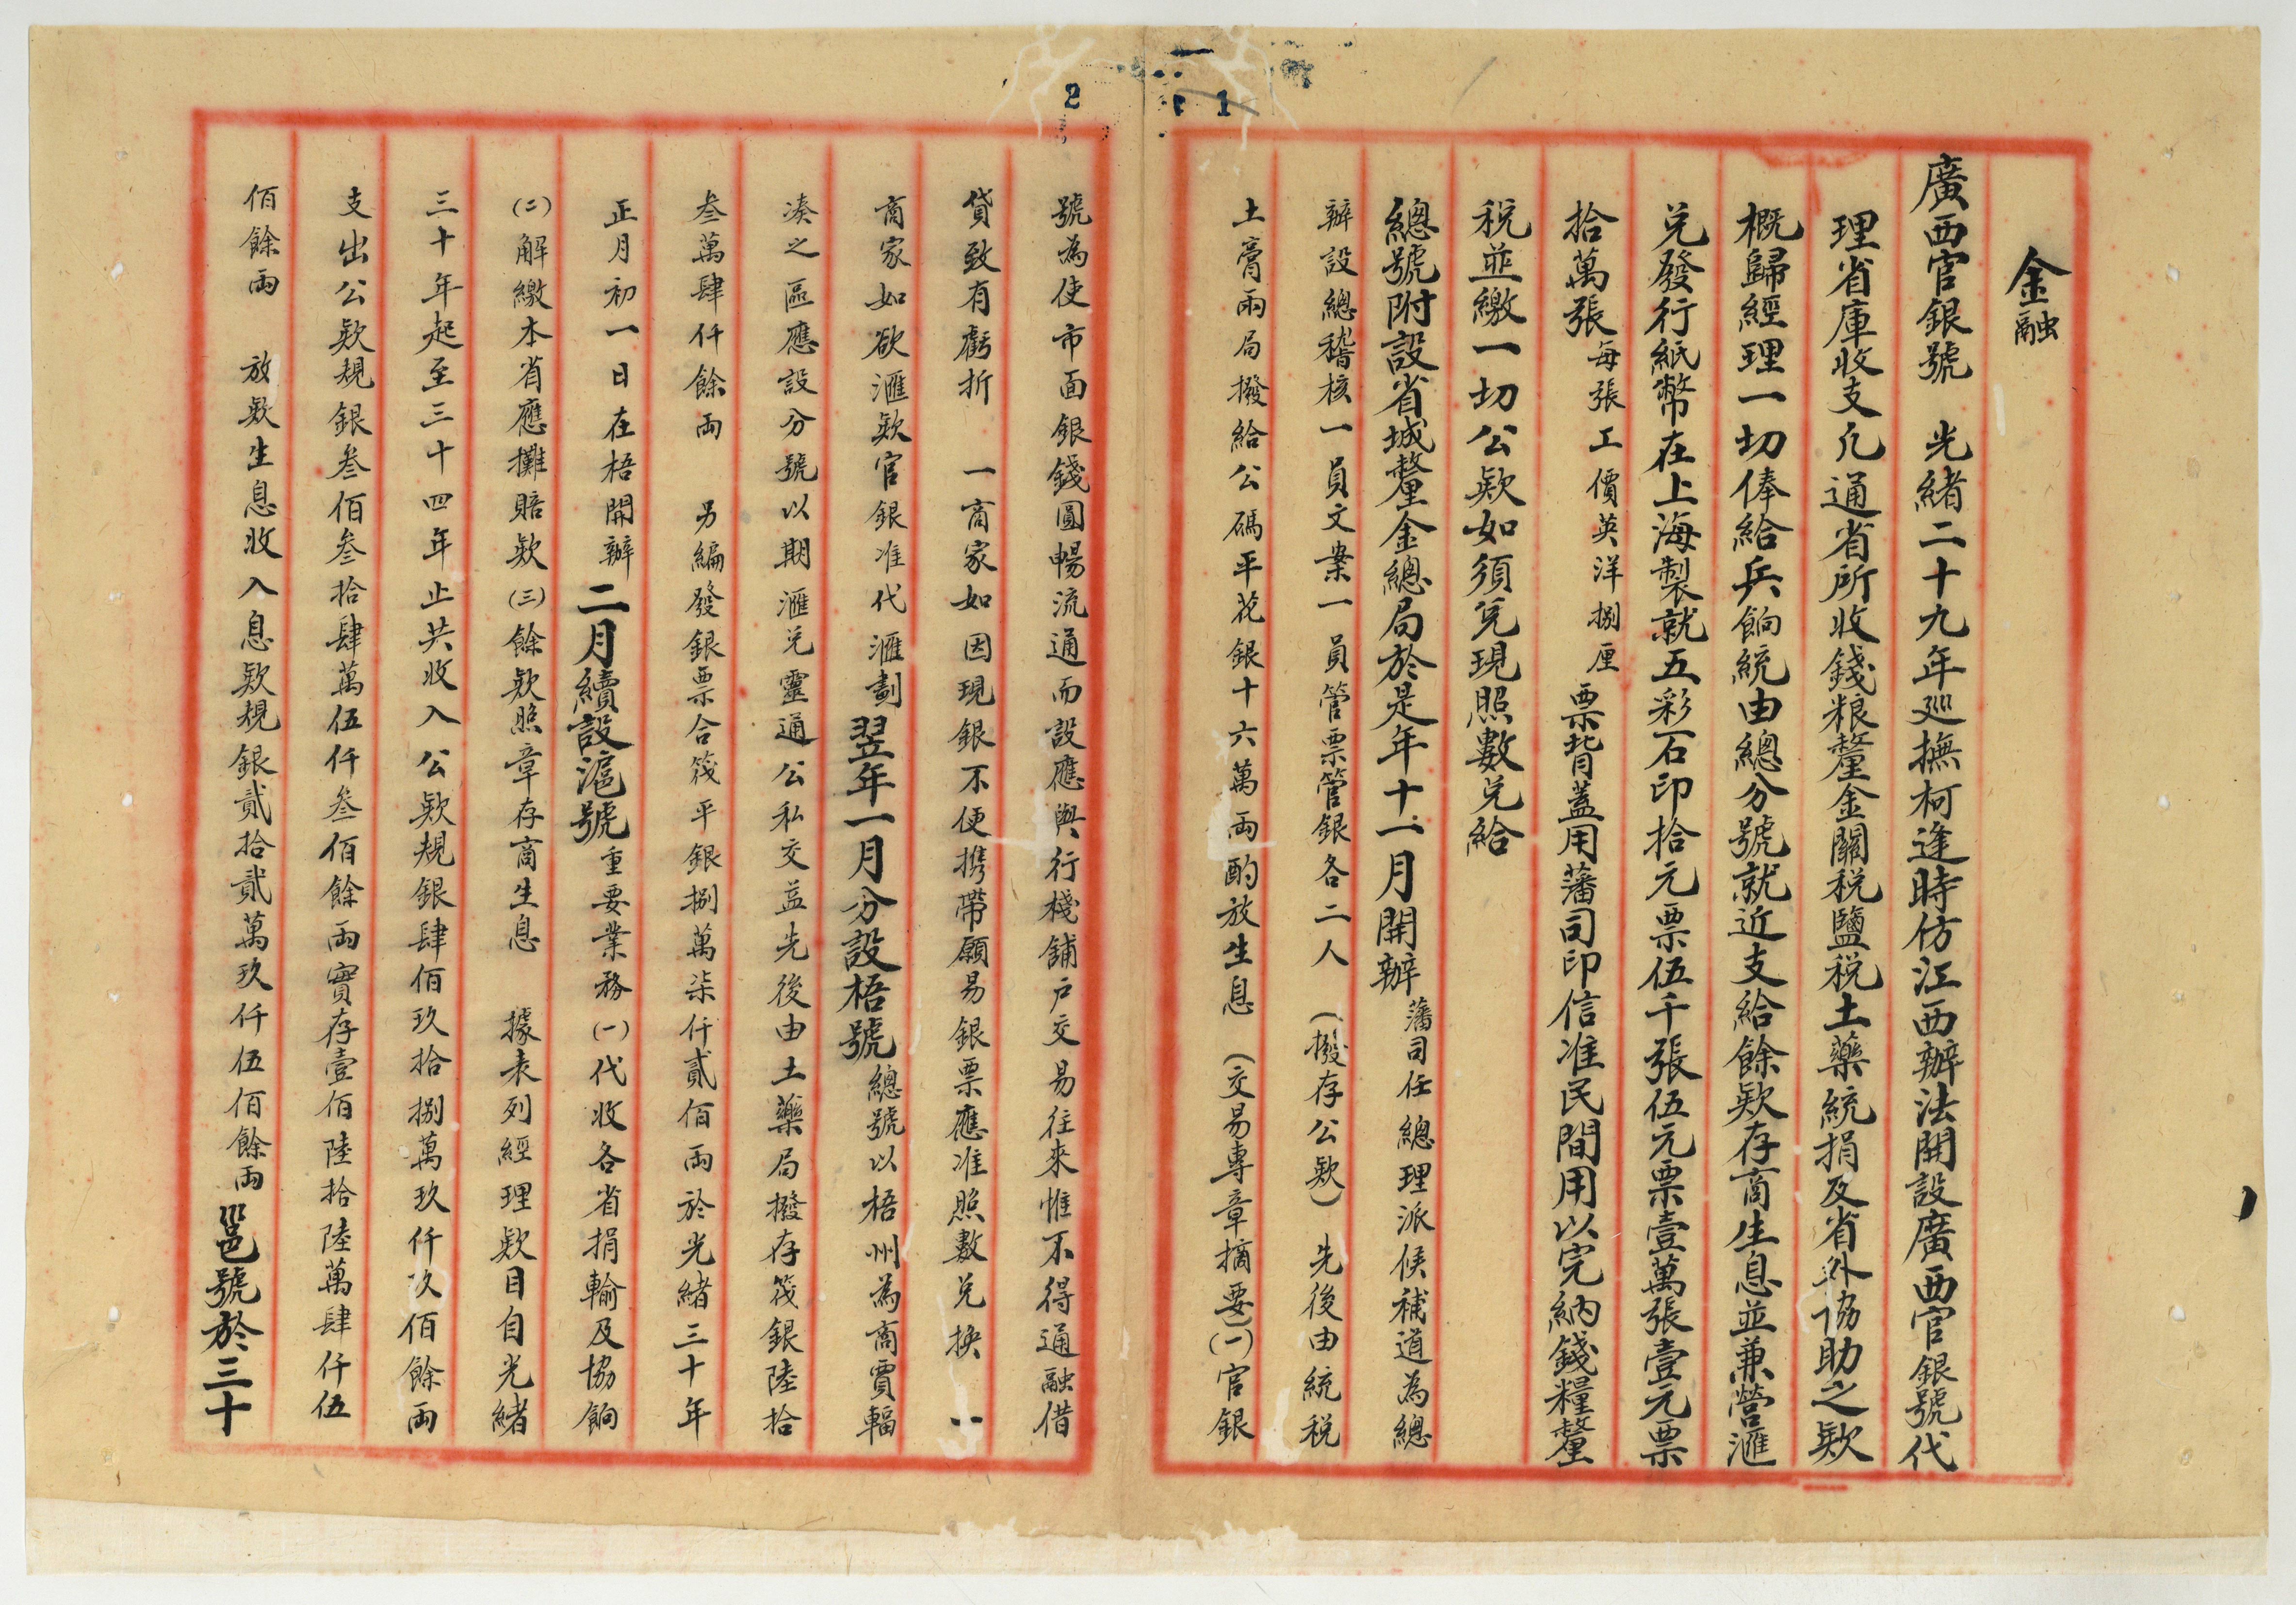 金融
廣西官銀號　光緒二十九年巡撫柯逢時仿江西辦法開設廣西官銀號代
理省庫收支凢通省所收錢粮釐金關税鹽税土藥統捐及省外協助之欵
概歸經理一切俸給兵餉統由總分號就近支給餘欵存商生息並兼營滙
兌發行紙幣在上海製就五彩石印拾元票伍千張伍元票壹萬張壹元票
拾萬張每張工價英洋捌厘票背蓋用藩司印信准民間用以完納錢糧釐
税並繳一切公欵如須兌現照數兌給
總號附設省城釐金總局於是年十一月開辦藩司任總理派候補道為總
辦設總稽核一員文案一員管票管銀各二人（撥存公欵）先後由統税
土膏兩局撥給公碼平花銀十六萬両酌放生息（交易專章摘要）(一)官銀
號為使市面銀錢圓暢流通而設應與行棧舖户交易往來惟不得通融借
貸致有虧折　一商家如因現銀不便携帶願易銀票應准照數兌換　一
商家如欲滙欵官銀准代滙劃翌年一月分設梧號總號以梧州為商賈輻
凑之區應設分號以期滙兌靈通公私交益先後由土藥局撥存筏銀陸拾
叁萬肆仟餘両　另編發銀票合筏平銀捌萬柒仟貳佰両於光緒三十年
正月初一日在梧開辦二月續設滬號重要業務(一)代收各省捐輸及協餉
(二)解繳本省應攤賠欵(三)餘欵照章存商生息　據表列經理欵目自光緒
三十年起至三十四年止共收入公欵規銀肆佰玖拾捌萬玖仟玖佰餘両
支出公欵規銀叁佰叁拾肆萬伍仟叁佰餘両實存壹佰陸拾陸萬肆仟伍
佰餘両　放欵生息收入息欵規銀貳拾貳萬玖仟伍佰餘両邕號於三十
1
2